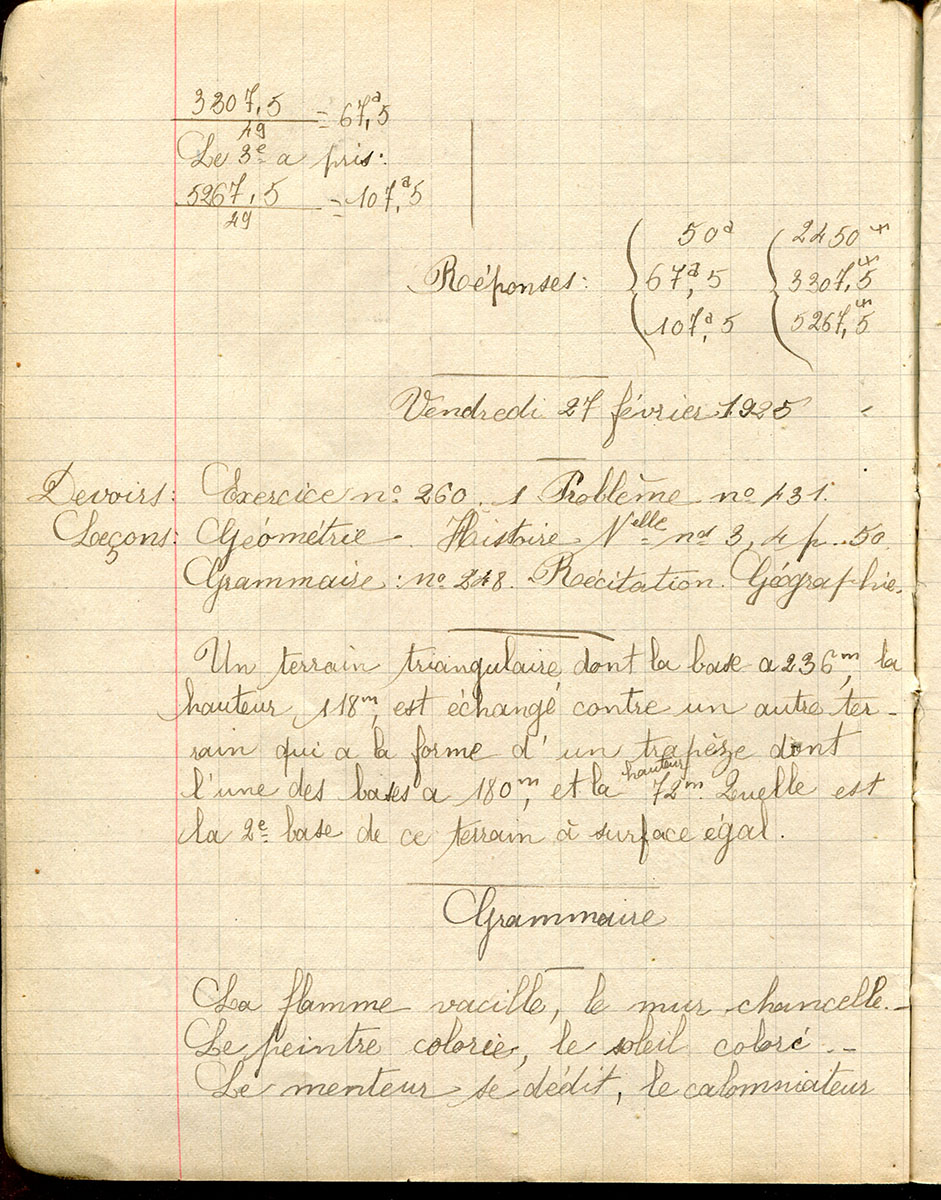 3307,5 / 49 = 67,ᵃ5
Le 3ᵉ a pris:
5267,5 / 49 = 107,ᵃ5
50ᵃ 2450
Réponses: 67,ᵃ5 3307,5
107,ᵃ5 5267,5
Vendredi 27 février 1925
Devoirs: Exercice nº 260. 1 Problème nº 431.
Leçons: Géométrie. Histoire Nᵉˡˡᵉ nᵒˢ 3, 4 p. 50
5
Grammaire: nº 248. Récitation. Géographie.
Un terrain triangulaire, dont la base a 236ᵐ, la
hauteur 118ᵐ, est échangé contre un autre ter-
rain qui a la forme d'un trapèze dont
l'une des bases a 180ᵐ, et la hauteur 72ᵐ. Quelle est
la 2ᵉ base de ce terrain à surface égal.
Grammaire
La flamme vacille, le mur chancelle.-
Le peintre colorie, le soleil coloré.-
Le menteur se dédit, le calomniateur